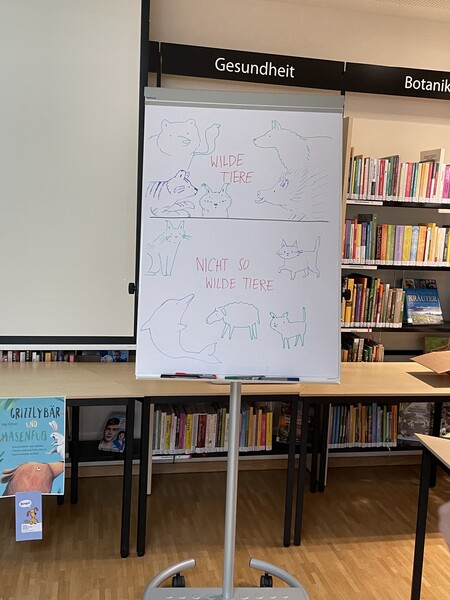 Gesundheit
Botanik
WILDE
TIERE
NICHT SO
WILDE TIERE
KRÄUTER
GRIZZLYBÄR
UND
HASENFUß